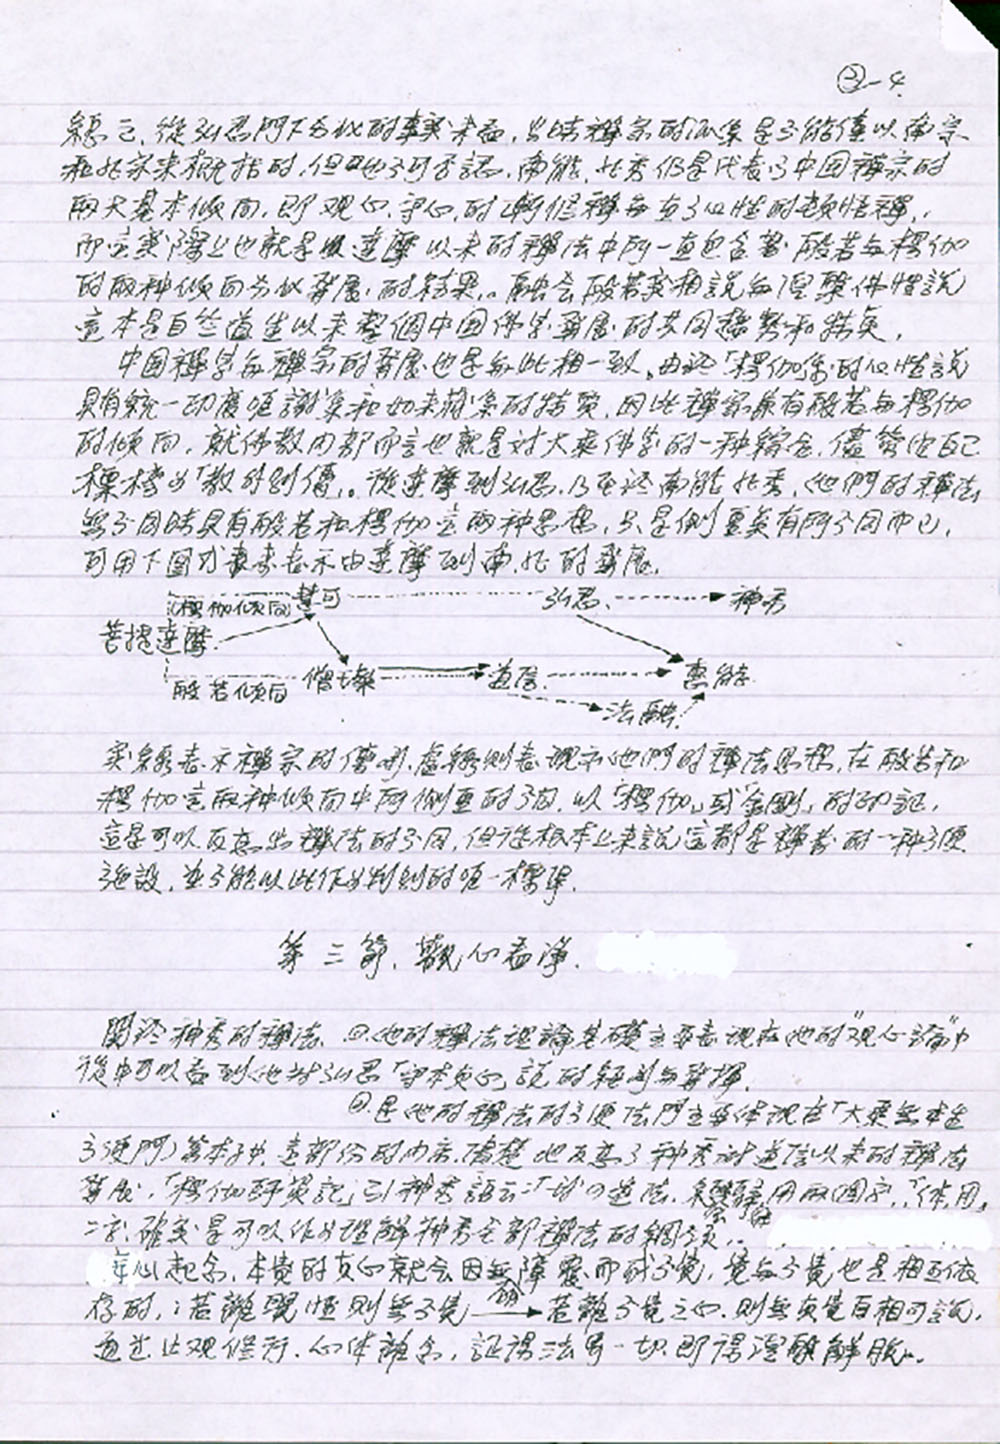 ②-4.
總之,從弘忍門下分化的事實來看,當時禪宗的派系是不能僅以南宗
和北宗來概括的,但也不可否認,南能、北秀仍是代表了中国禪宗的
兩大基本傾向,即观心、守心,的漸修禪与直了心性的頓悟禪,
而這實際上也就是從達摩以來的禪法中所一直包含著般若与楞伽
的兩种傾向分化發展的結果。融会般若实相說与涅槃佛性說
這本是自竺道生以來整個中国佛学發展的共同趨勢和特点,
中国禪学与禪宗的發展也是与此相一致。由於「楞伽係的心性說
具有統一印度唯識系和如來藏系的特質,因此禪家兼有般若与楞伽
的傾向,就佛教内部而言也就是对大乘佛学的一种綜合,儘管它自己
標榜为「教外別傳」。從達摩到弘忍,乃至於南能北秀,他們的禪法
無不同時具有般若和楞伽這兩种思想,只是側重英有所不同而已,
可用下圖式表來表示由達摩到南、北的發展,
(楞伽傾向) 慧可 弘忍 神秀
菩提達摩
般若傾向 僧璨 道信 惠能
法融
实線表示禪宗的傳承,虛線則表現示他們的禪法思想,在般若和
楞伽這兩种傾向中所側重的不同,以「楞伽」或「金剛」的印証,
這是可以反应出禪法的不同,但從根本上來說這都是禪者的一种方便
施設,並不能以此作为判別的唯一標準,
第三節、觀心看淨.
関於神秀的禪法、他的禪法理論基礎主要表現在他的"观心論"中
從中可以看到他对弘忍「守本真心」說的繼承与發揮,
是他的禪法的方便法門主要体現在「大乘無生
方便門」等本中,這部份的内容,清楚地反应了神秀对道信以來的禪法
發展,「楞伽師資記」引神秀語云:「我の道法,總會歸体用兩個字」,「体、用」
二字確实是可以作为理解神秀全部禪法的綱領,
妄心起念,本覺的真心就会因無明障覆而成不覺,覺与不覺也是相互依
存的,:若離覺性則無不覺 若離不覺之心,則無真覺自相可說,
通过此观修行,心体離念,証得法界一切,即得涅槃解脫.